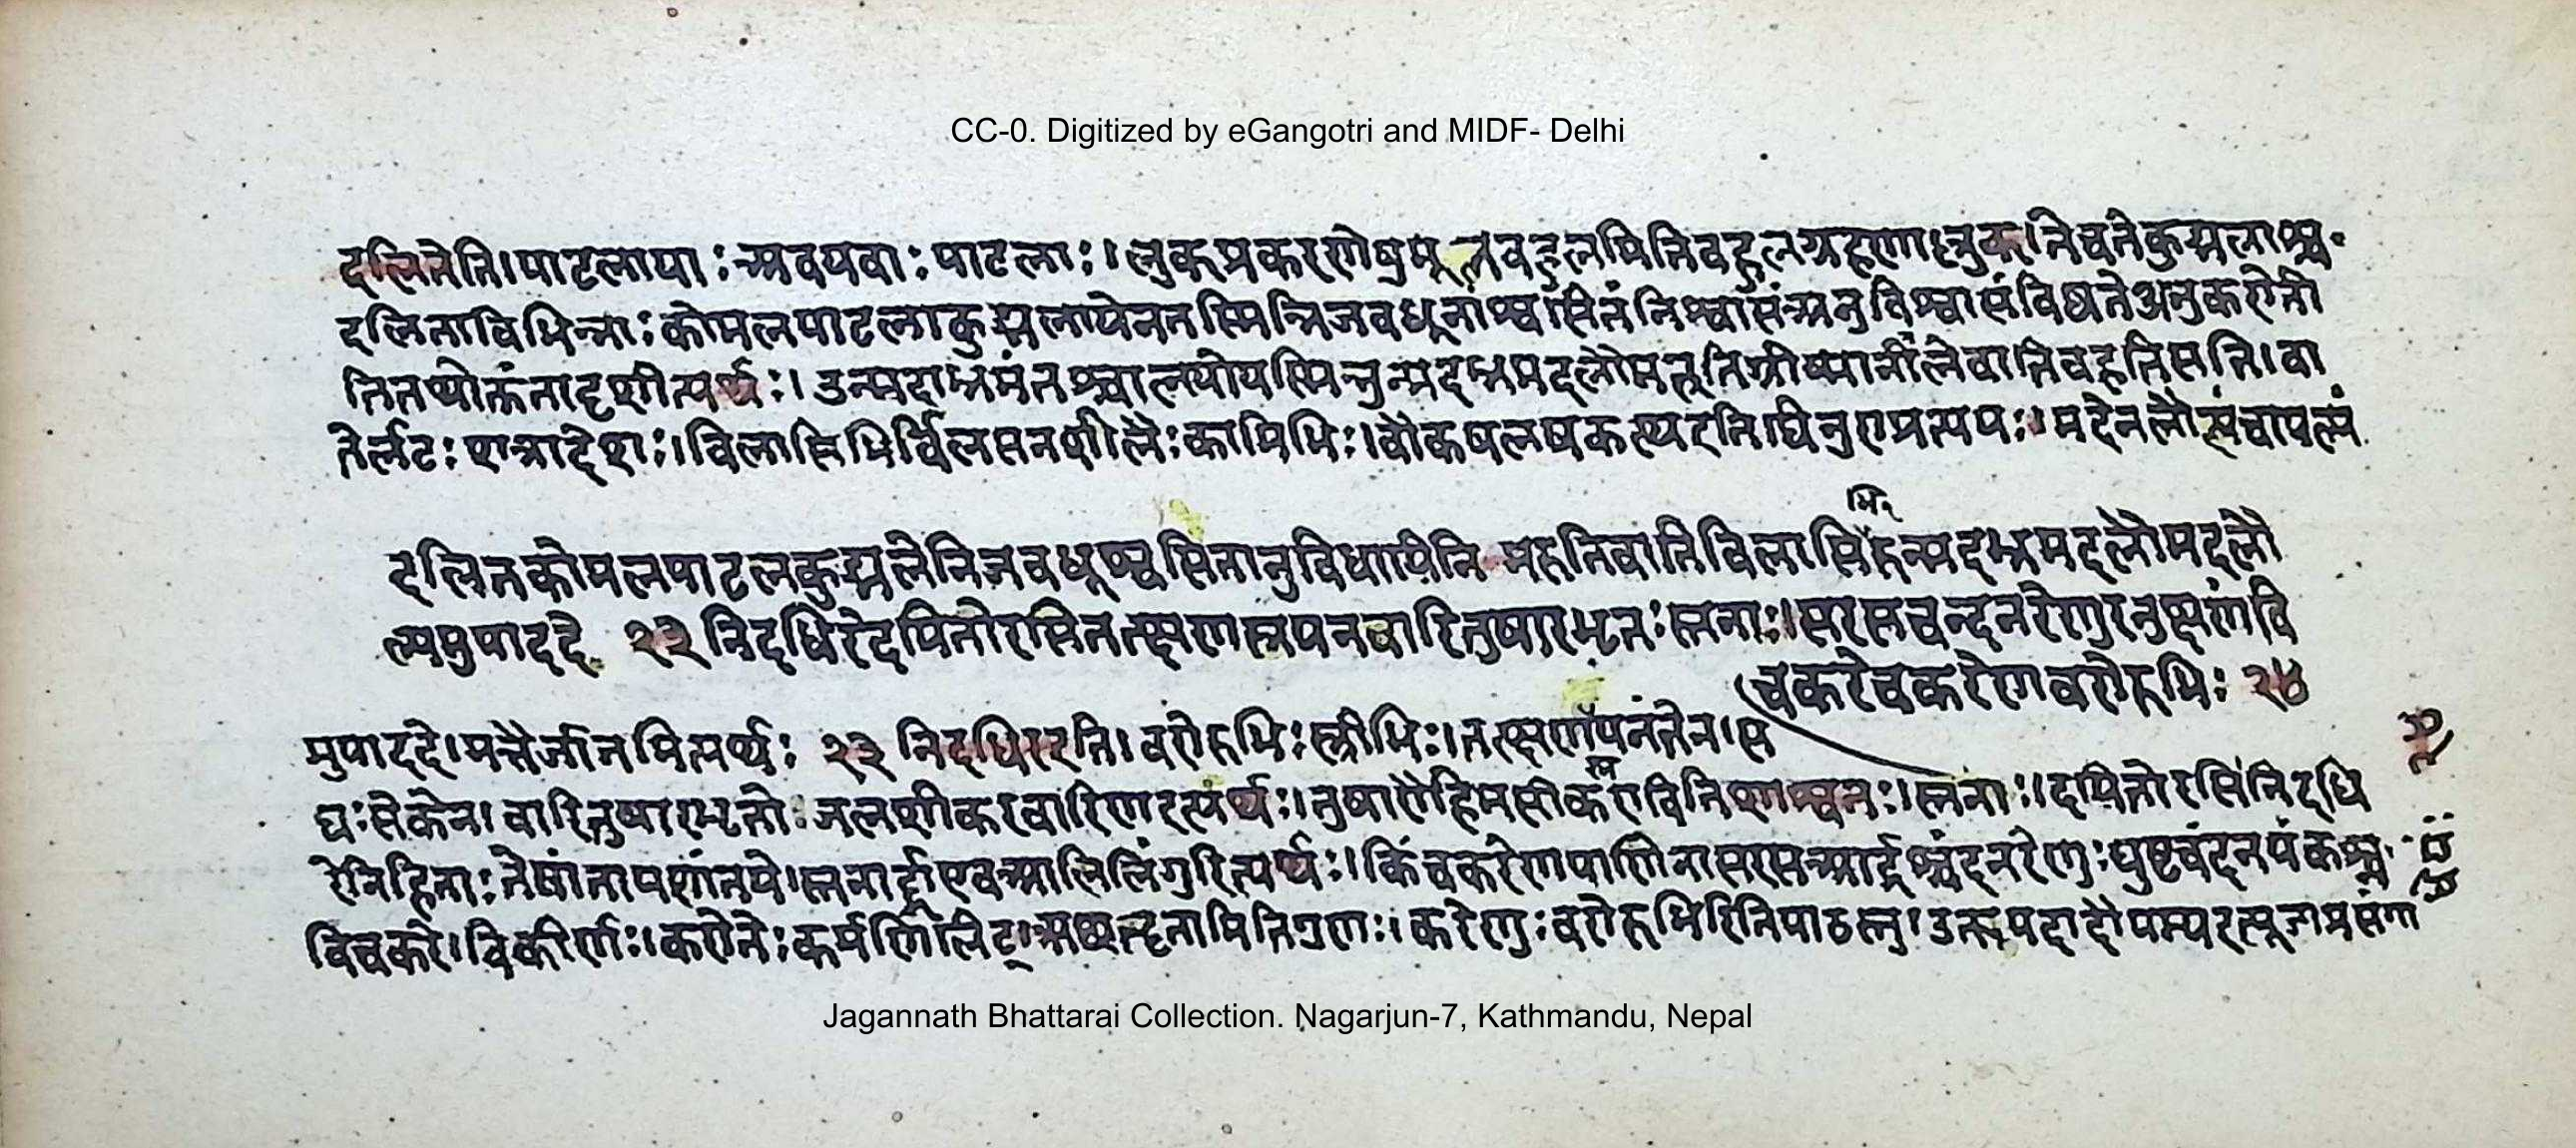 CC-0. Digitized by eGangotri and MIDF- Delhi
दलितेति।पाटलायाः अवयवाः पाटलाः।लुक्प्रकरणेपुष्पमूलेषुबहुलमितिवहुलग्रहणा कुद्मलाश्च
दलिताविभिन्नाः कोमलपाटलाकुद्मलायेनतस्मिन्निजवधूनांश्वसितंनिश्वासंअनुविधत्ते अनुकरोती
तितथोक्तंतादृशीत्यर्थः।उन्मदाभ्रमंतश्चालयोयस्मिन्नुन्मदभ्रमदलौमरुतिग्रीष्मानीलेवातिवहतिसति।वा
तेर्लटः शत्रादेशः।विलासिभिर्विलसनशीलैः कामिभिः।वौकषलषकत्थ घिनुण्प्रत्ययः।मदेनलौल्यंचापल्यं
भि
दलितकोमलपाटलकुद्मलेनिजवधूश्वसितानुविधायिनि मरुतिवातिविलासिरुन्मदभ्रमदलौमदलौ
ल्यमुपाददे २३ निदधिरेदयितोरसितत्क्षणस्नपनवारितुषारभृतः स्तनाः।सरसचन्दनरेणुरनुक्षणंवि
चकरेचकरेणवरोरुभिः २४
मुपाददे।मत्तैर्जातमित्यर्थः २३ निदधिरइति।वरोरुभिः स्त्रीभिः।तत्क्षणंपनंतेन।स
स्न
द्यः सेकेन।वारितुषारभृतो जलशीकरवारिणइत्यर्थः।तुषारौहिमसीकरावितिशाश्वतः।स्तनाः।दयितोरसिनिदधि
रेनिहिताः तेषांतापशांतये।स्तनार्द्राएवआलिलिंगुरित्यर्थः।किंचकरेणपाणिनासरसआर्द्रश्चंदनरेणुः घृष्टचंदनपंकश्च
विचकरे।विकीर्णः।करोतेः कर्मणिलिट् मितिगुणः।करेणुः वरोरुभिरितिपाठस्तु।उरूपपदादौपम्यइत्यूङ्प्रसंगा
Jagannath Bhattarai Collection. Nagarjun-7, Kathmandu, Nepal